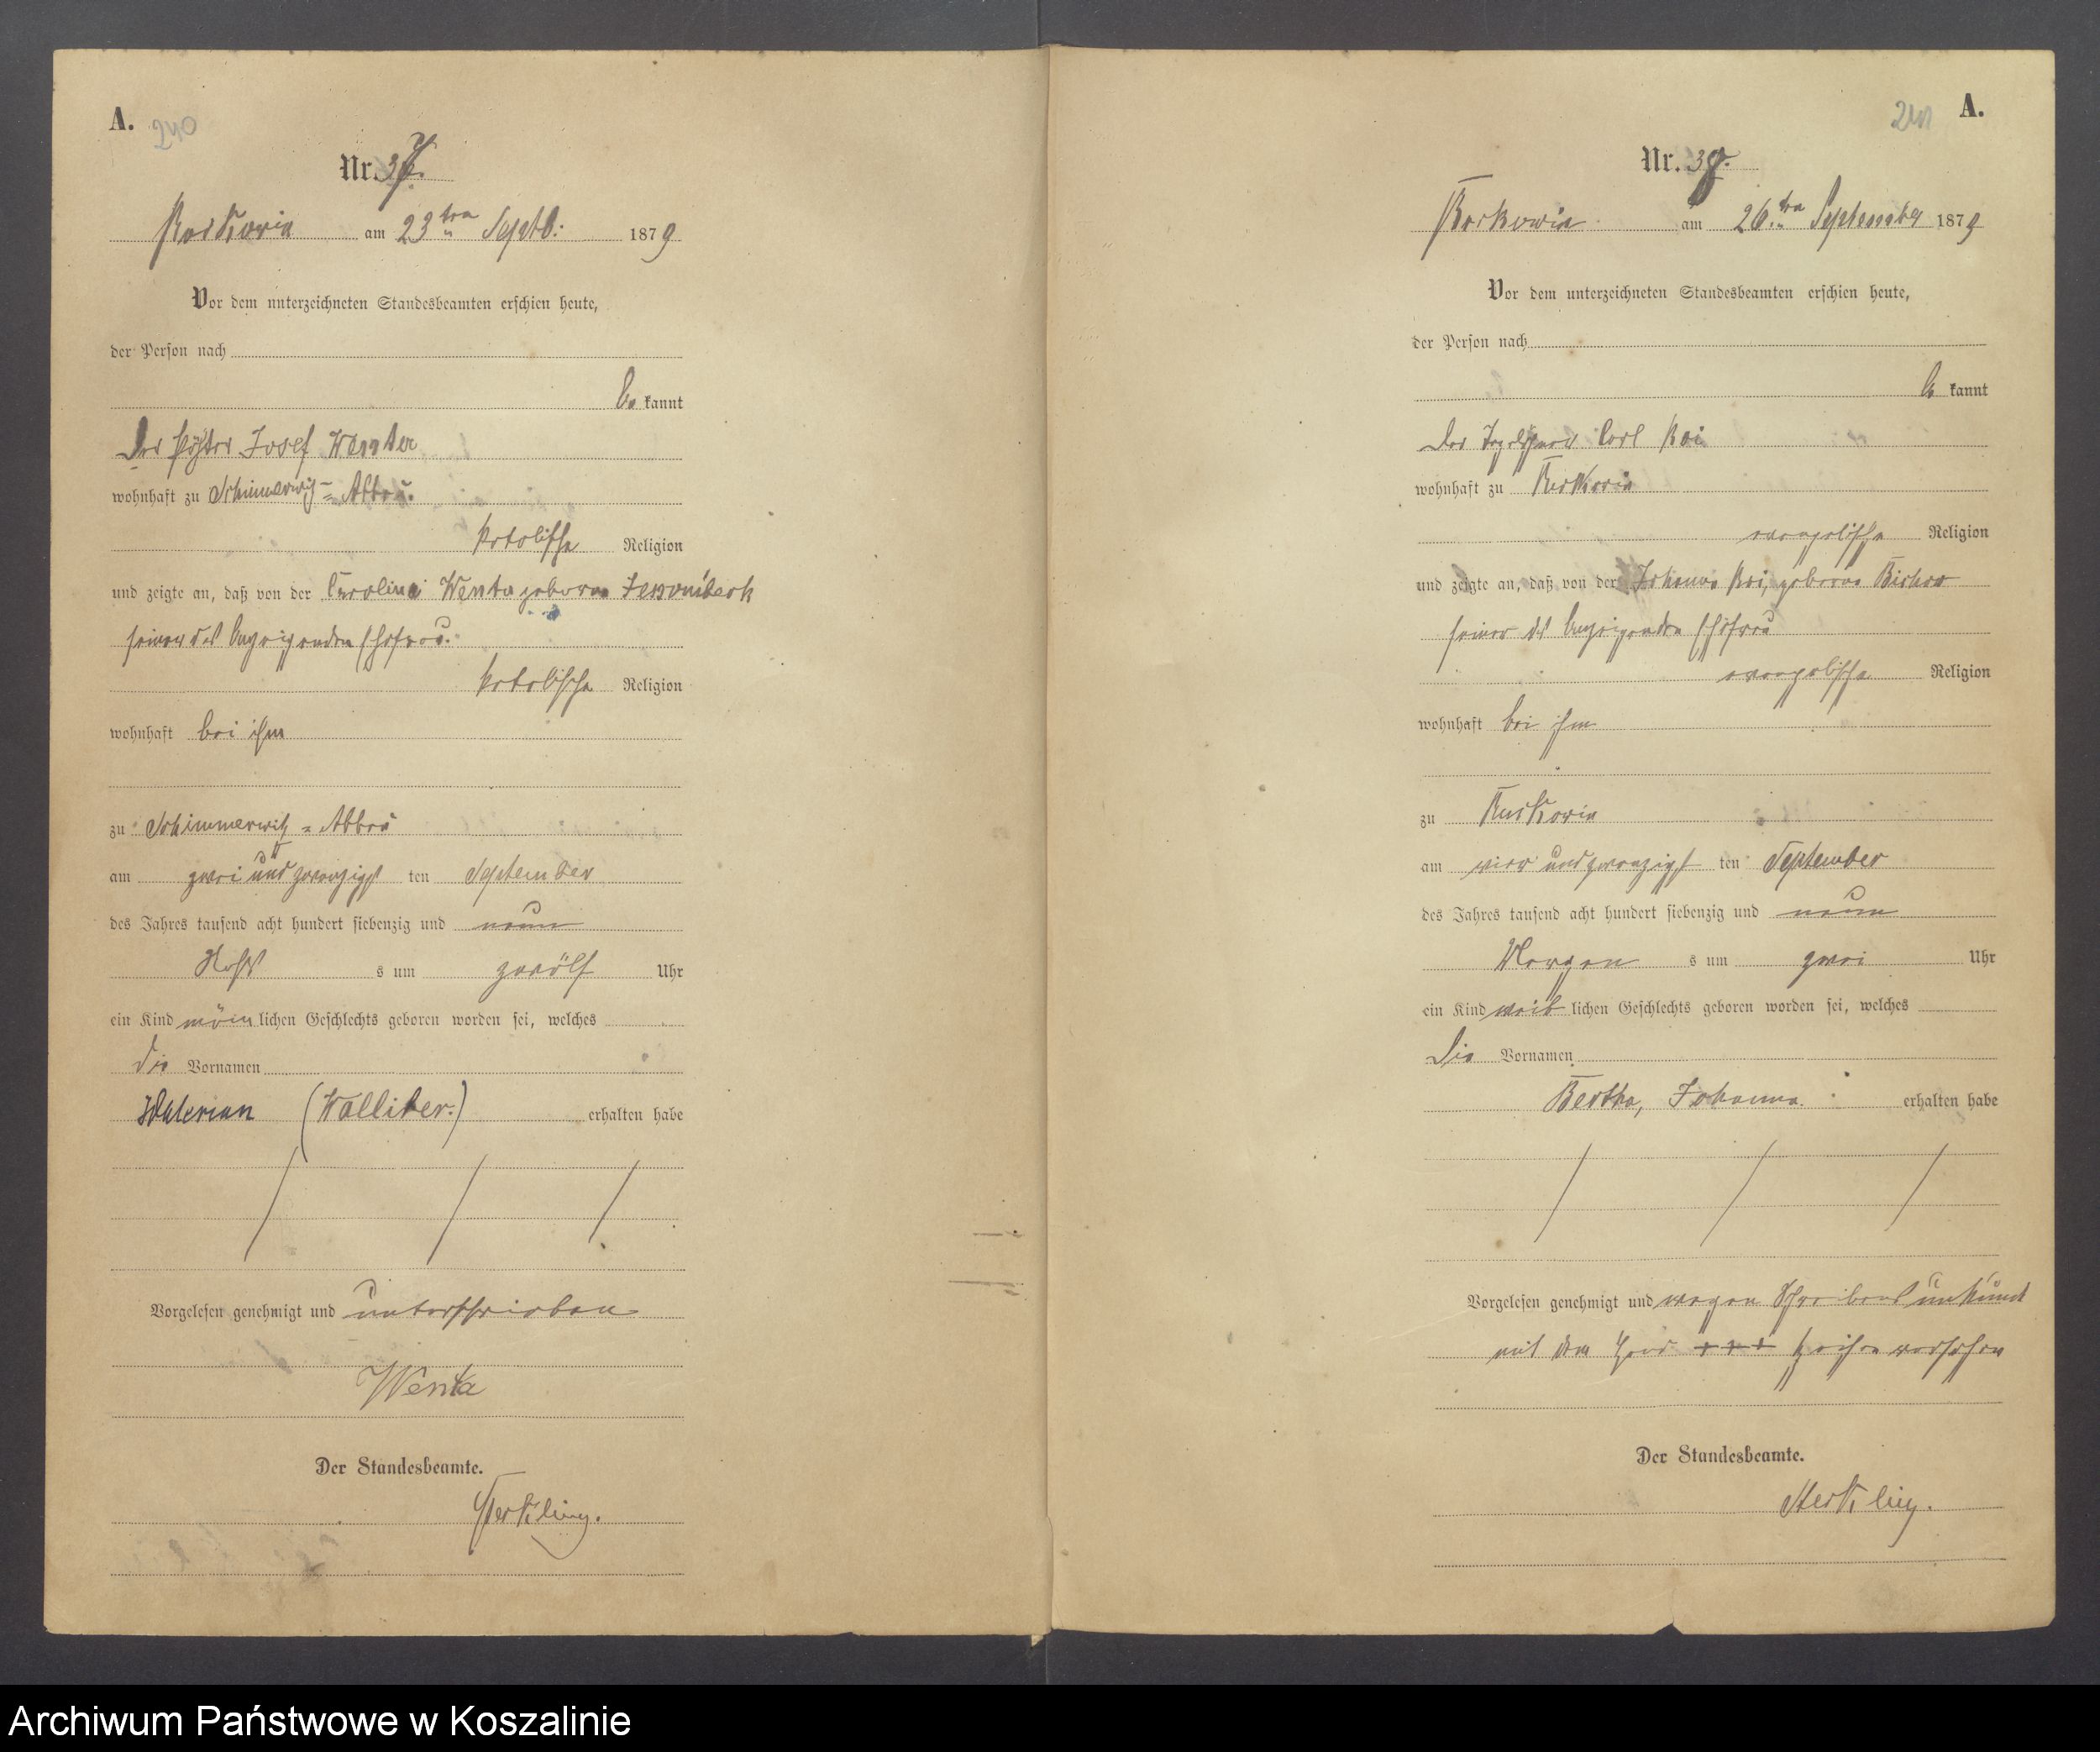 A.
240
Nr. 37.
am 23ten Septb: 1879
Vor dem unterzeichneten Standesbeamten erschien heute,
der Person nach
be kannt
Der Josef Wenta
wohnhaft zu Schimmerwitz = Abbau.
katolische Religion
und zeigte an, daß von der Carolina Wenta geborne
seiner des Anzeigenden Ehefrau.
katolische Religion
wohnhaft bei ihm
zu Schimmerwitz = Abbau
am zwei und zwanzigst ten September
des Jahres tausend acht hundert siebenzig und neun
s um zwölf Uhr
ein Kind män lichen Geschlechts geboren worden sei, welches
die Vornamen
Walerian erhalten habe
Vorgelesen genehmigt und unterschrieben
Wenta
Der Standesbeamte.
A.
241
Nr. 38.
am 26.ten September 1879
Vor dem unterzeichneten Standesbeamten erschien heute,
der Person nach
be kannt
Der Carl
wohnhaft zu
evangelische Religion
und zeigte an, daß von der Johanna geborne
seiner des Anzeigenden Ehefrau
evangelische Religion
wohnhaft bei ihm
zu
am vier und zwanzigst ten September
des Jahres tausend acht hundert siebenzig und neun
Morgen s um zwei Uhr
ein Kind weib lichen Geschlechts geboren worden sei, welches
die Vornamen
Bertha, Johanna. erhalten habe
Vorgelesen genehmigt und wegen Schreibens unkunde
mit dem Hand +++ Zeichen versehen
Der Standesbeamte.
Archiwum Państwowe w Koszalinie